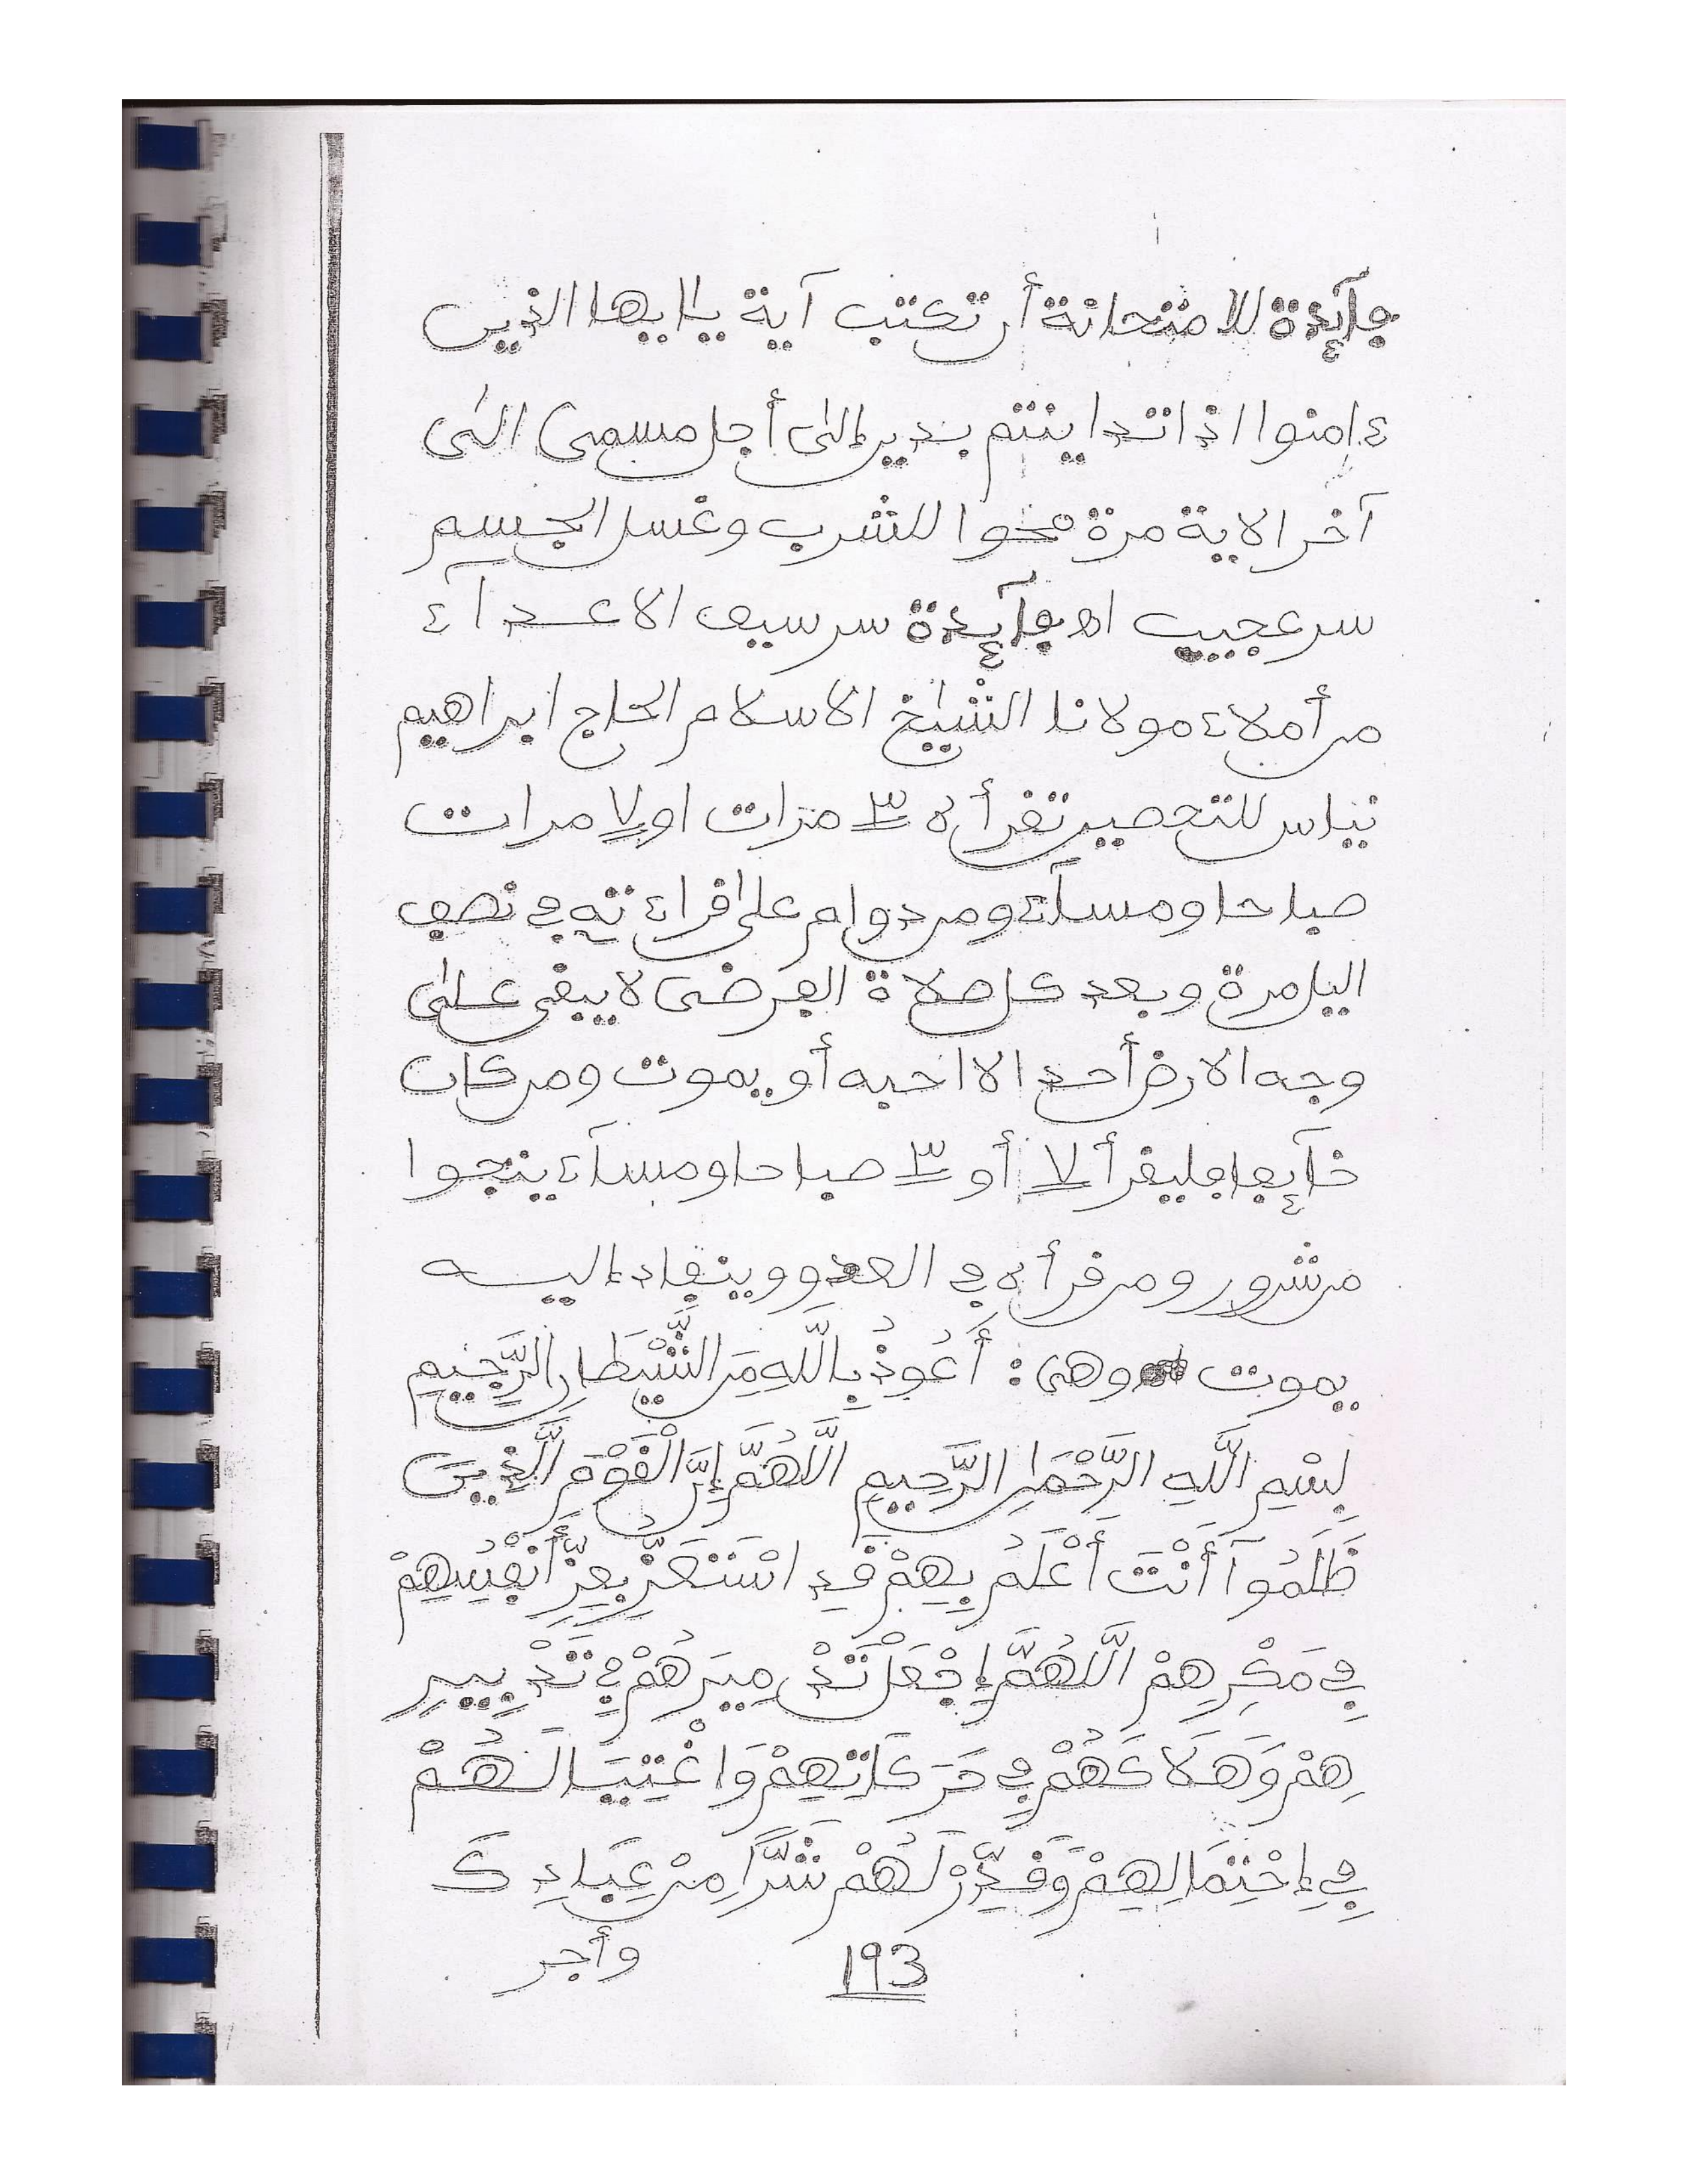 فآئدة للامتحانة أن تكتب آية ياايها الذين
ءامنوا اذا تداينتم بدين إلى أجل مسمى الى
آخر الاية مرة محوا للشرب وغسل الجسم
سر عجيب اه فآئدة سر سيف الاعدآء
من أملاء مولانا الشيخ الاسلام الحاج ابراهيم
نياس للتحصين تقرأه ٣ مرات او ٧ مرات
صباحا ومسآء ومن دوام على قراءته في نصف
اليل مرة وبعد كل صلاة الفرضى لا يبقى على
وجه الارض أحد الا احبه أو يموت ومن كان
خآئفا فليقرأ ٧ أو ٣ صباحا ومسآء ينجوا
من شرور ومن قرأه في العدو وينقاد إليه
يموت وهى : أَعُوذُ بِاللَّهِ مِنَ الشَّيْطَانِ الرَّجِيمِ
بِسْمِ اللَّهِ الرَّحْمَنِ الرَّحِيمِ اللَّهُمَّ إِنَّ الْقَوْمَ الَّذِينَ
ظَلَمُوآ أَنْتَ أَعْلَمُ بِهِمْ قَدِ اسْتَعَزُّ بِعِزِّ أَنْفُسِهِمْ
فِي مَكْرِهِمْ اللَّهُمَّ إِجْعَلْ تَدْمِيرَهُمْ فِي تَدْبِيرِ
هِمْ وَهَلَاكَهُمْ فِي حَرَكَاتِهِمْ وَاغْتِيَالَهُمْ
فِي إِحْتِمَالِهِمْ وَقَدِّرْ لَهُمْ شَرًّا مِنْ عِبَادِكَ
وأجر
193